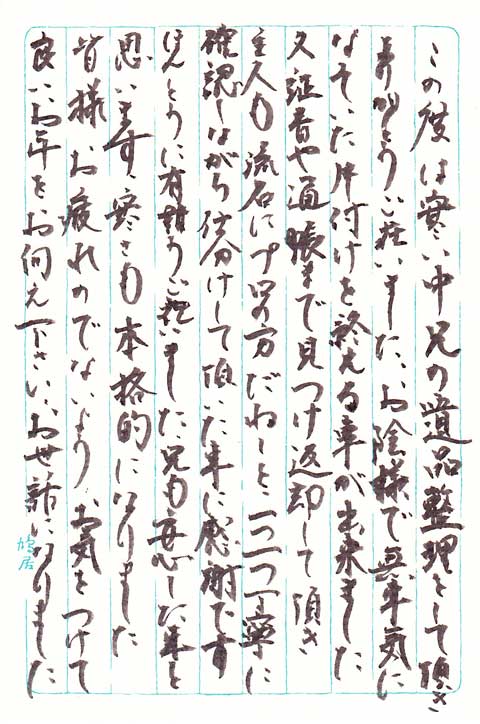 この度は寒い中兄の遺品整理をして頂き
ありがとうございました、お陰様で気に
なっていた片付けを終える事が出来ました
又証書や通帳まで見つけ返却して頂き
主人も流石にプロの方だねーと、一つ一つ丁寧に
確認しながら仕分けして頂いた事に感謝です
ほんとうに有難うございました兄も安心した事と
思います、寒さも本格的になりました
皆様お疲れのでないよう、お気をつけて
良いお年をお迎え下さい、お世話になりました
鳩居